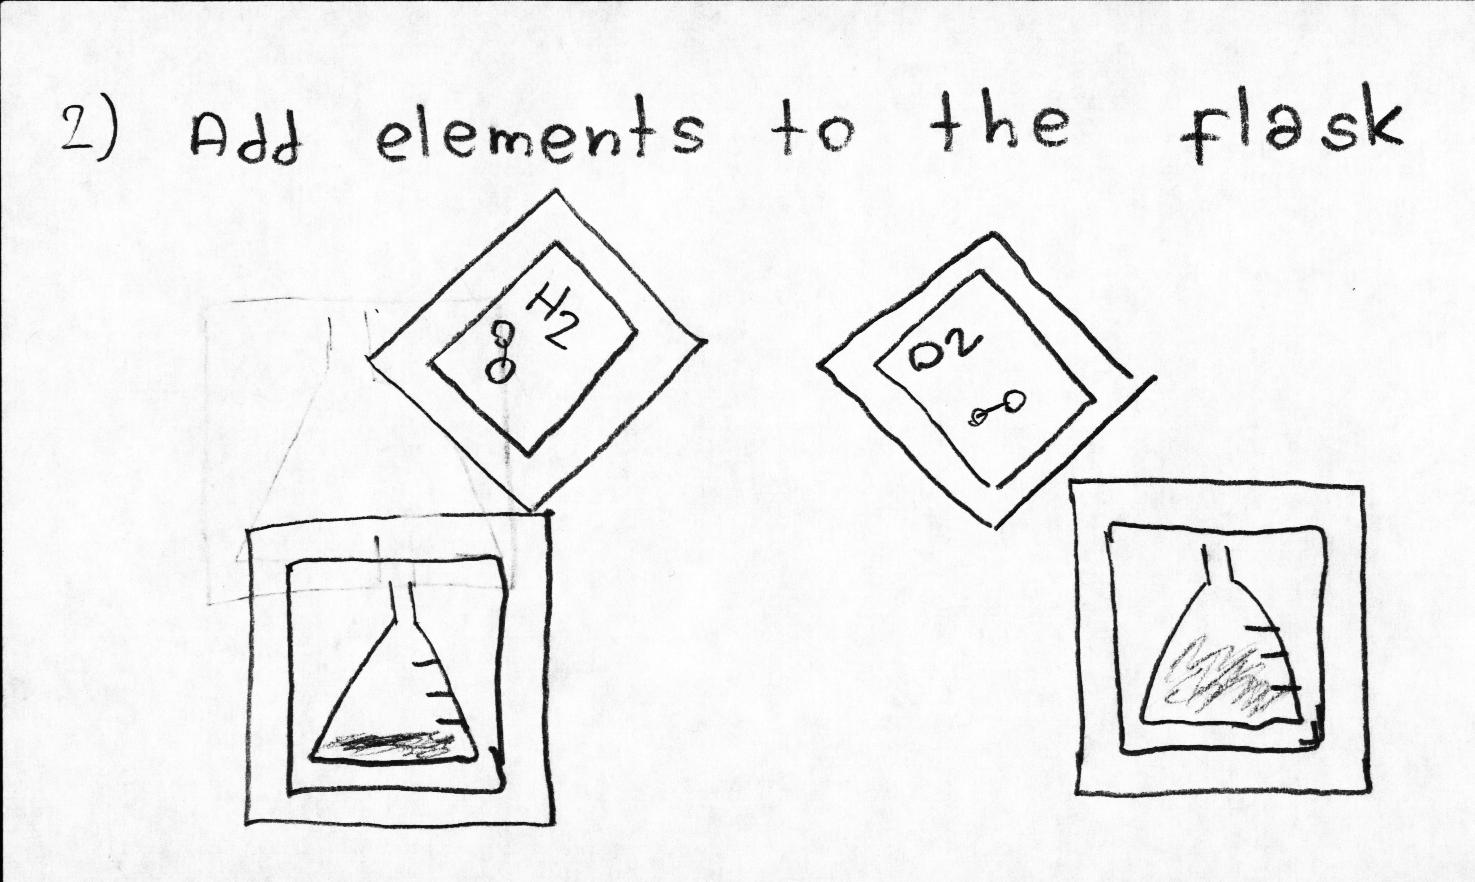 2) Add elements to the flask
H2
O2